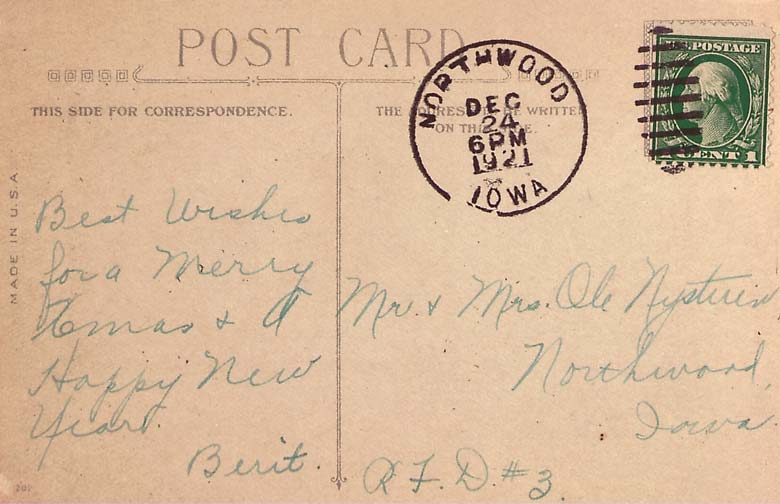 POST CARD
THIS SIDE FOR CORRESPONDENCE.
THE ADDRESS TO BE WRITTEN
ON THIS SIDE.
NORTHWOOD
DEC
24
6 PM
1921
IOWA
U.S. POSTAGE
1 CENT 1
MADE IN U.S.A
Best Wishes
for a Merry
Xmas & A
Happy New
Year.
Berit.
Mr. & Mrs. Ole
Northwood,
Iowa.
R F. D #3.